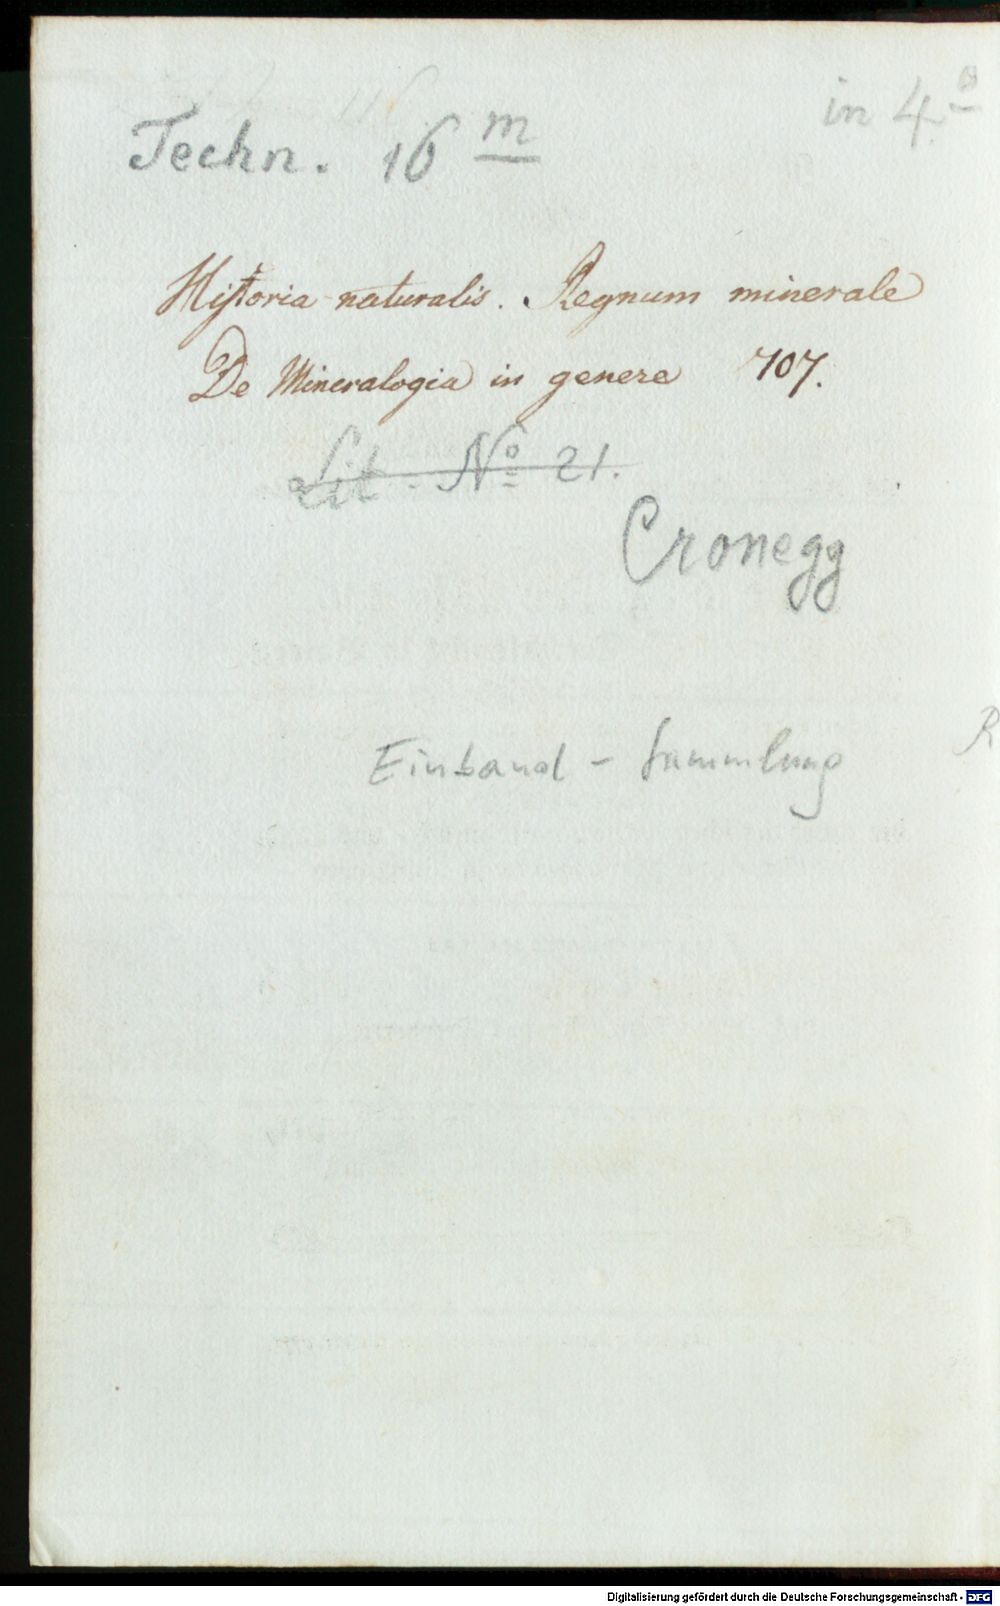 in 4.º
Techn. 16 m
Historia naturalis. Regnum minerale
De Mineralogia in genere 707.
Lit. Nº 21.
Cronegg
R
Einband - Sammlung
Digitalisierung gefördert durch die Deutsche Forschungsgemeinschaft - DFG